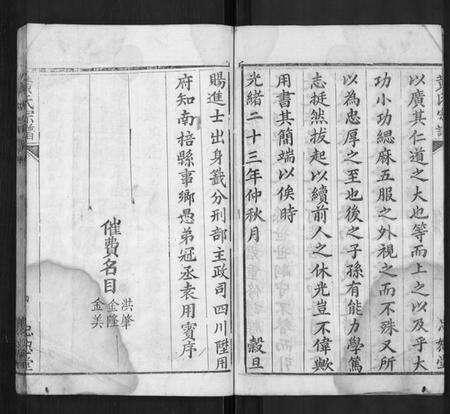 以廣其仁道之大也等而上之以及乎大
功小功緦麻五服之外視之而不殊又所
以為忠厚之至也後之子孫有能力學篤
志挺然拔起以續前人之休光豈不偉歟
用書其簡端以俟時
光緒二十三年仲秋月 穀旦
賜進士出身籤分刑部主政司四川陞用
府知南梧縣事鄉愚弟冠丞袁用賓序
催費名目
洪肇
金隆
金美
氏宗譜